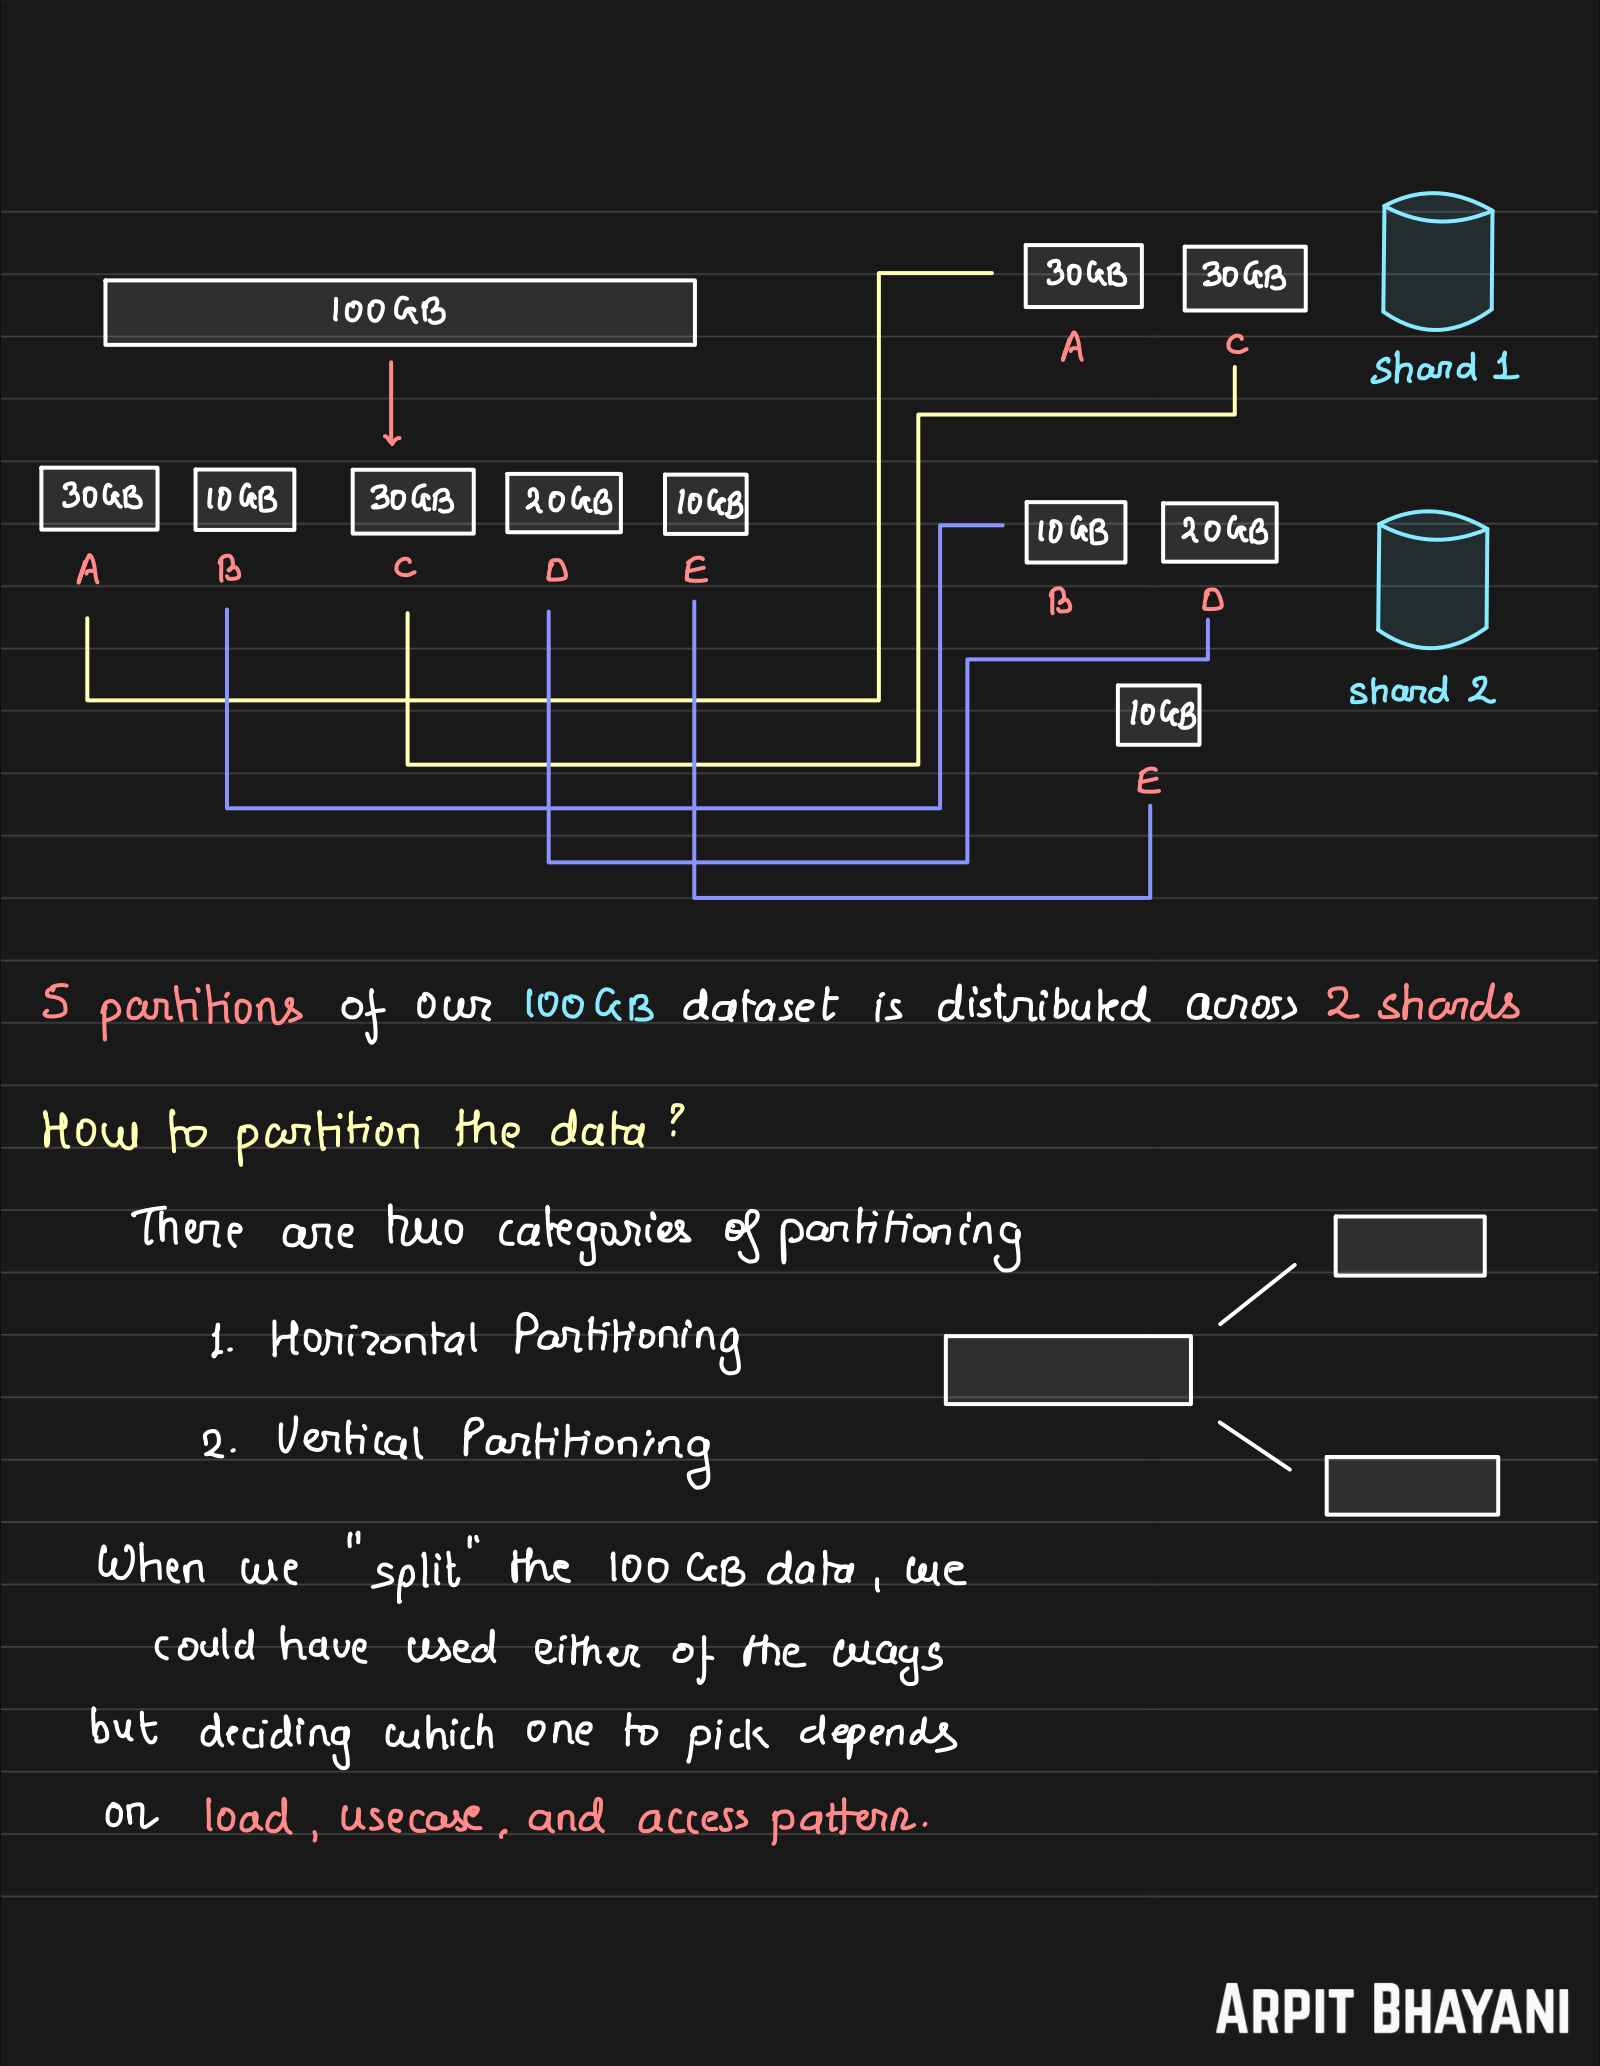 100GB
30GB 10GB 30GB 20GB 10GB
A B C D E
30GB 30GB
A C
shard 1
10GB 20GB
B D
shard 2
10GB
E
5 partitions of our 100GB dataset is distributed across 2 shards
How to partition the data?
There are two categories of partitioning
1. Horizontal Partitioning
2. Vertical Partitioning
When we "split" the 100 GB data, we
could have used either of the ways
but deciding which one to pick depends
on load, usecase, and access pattern.
ARPIT BHAYANI